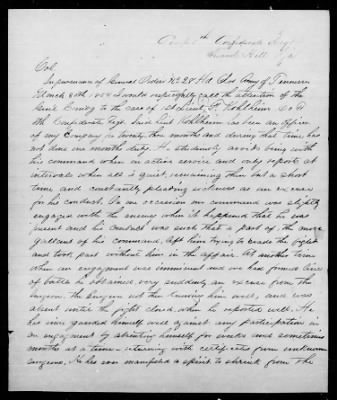 Camp 8th Confederate Regt
Col.
In pursuance of General Orders No 28 Hd Qrs Army of Tennessee
March 8th 1864 I would respectfully call the attention of the
to the case of 1st Lieut F. Kohlheim Co
8th Confederate Regt. Said Lieut Kohlheim has been an officer
of my Company for twenty two months and during that time has
not done one months duty. He studiously avoids being with
his command when in active service and only reports at
intervals when all is quiet, remaining then but a short
time and constantly pleading sickness as an excuse
for his conduct. On an occasion our command was slightly
engaged with the enemy when it happened that he was
present and his conduct was such that a part of the more
gallant of his command, left him trying to evade the fight
and took part without him in the affair. At another time
when an engagement was imminent and we had formed line
of battle he obtained very suddenly an excuse from the
Surgeon. the Surgeon not then knowing him well, and was
absent until the fight closed when he reported well. He
has ever guarded himself well against any participation in
an engagement by absenting himself for weeks and sometimes
months at a time - returning with certificates from unknown
surgeons. He has soon manifested a spirit to shrink from the